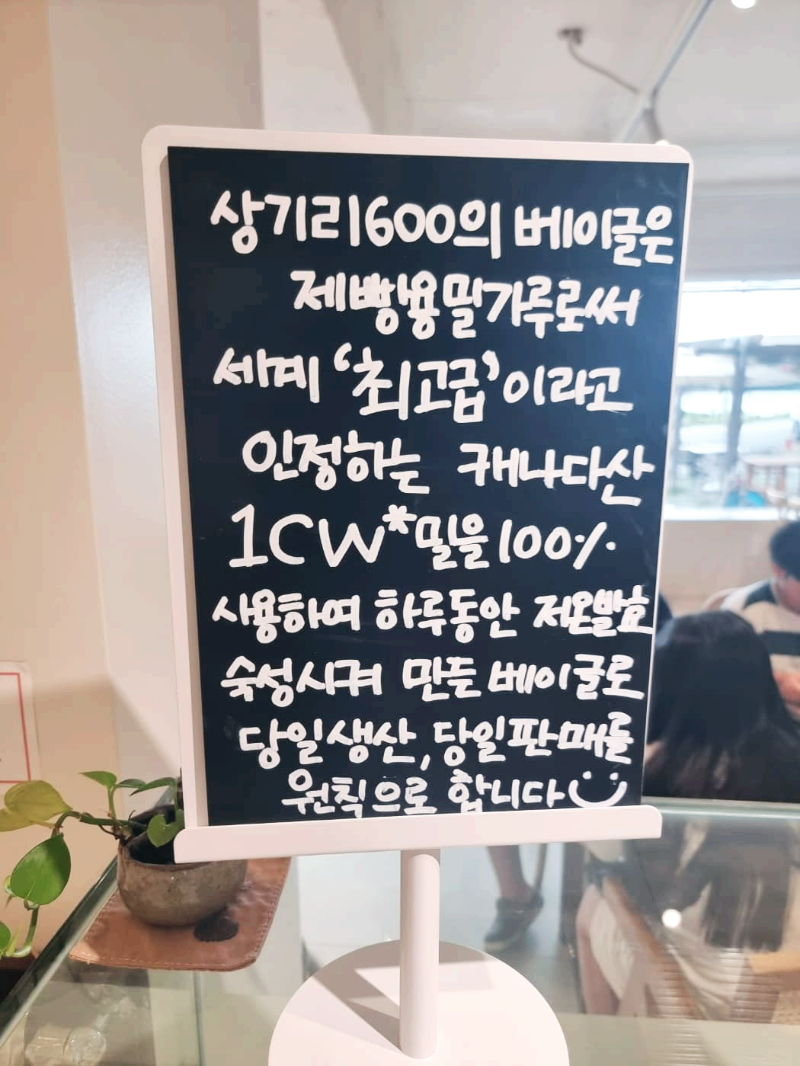 상기리600의 베이글은
제빵용밀가루로써
세계 '최고급'이라고
인정하는 캐나다산
1CW*밀을 100%
사용하여 하루동안 저온발효
숙성시켜 만든 베이글로
당일생산, 당일판매를
원칙으로 합니다